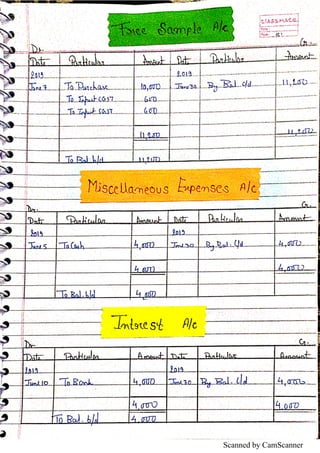 CLASSMATE
Date
Page
Free Sample A/c
Dr. Cr.
Date Particular Amount Dat Particular Amount
2019 2019
June 7 To Purchase 10,000 June 30 By Bal. c/d 11,200
To Input CGST 600
To Input SGST 600
11,200 11,200
To Bal. b/d 11,200
Miscellaneous Expenses A/c
Dr. Cr.
Date Particular Amount Date Particular Amount
2019 2019
June 5 To Cash 4,000 June 30 By Bal. c/d 4,000
4,000 4,000
To Bal. b/d 4,000
Interest A/c
Dr Cr.
Date Particular Amount Date Particular Amount
2019 2019
June 10 To Bank 4,000 June 30 By Bal. c/d 4,000
4,000 4,000
To Bal. b/d 4,000
Scanned by CamScanner